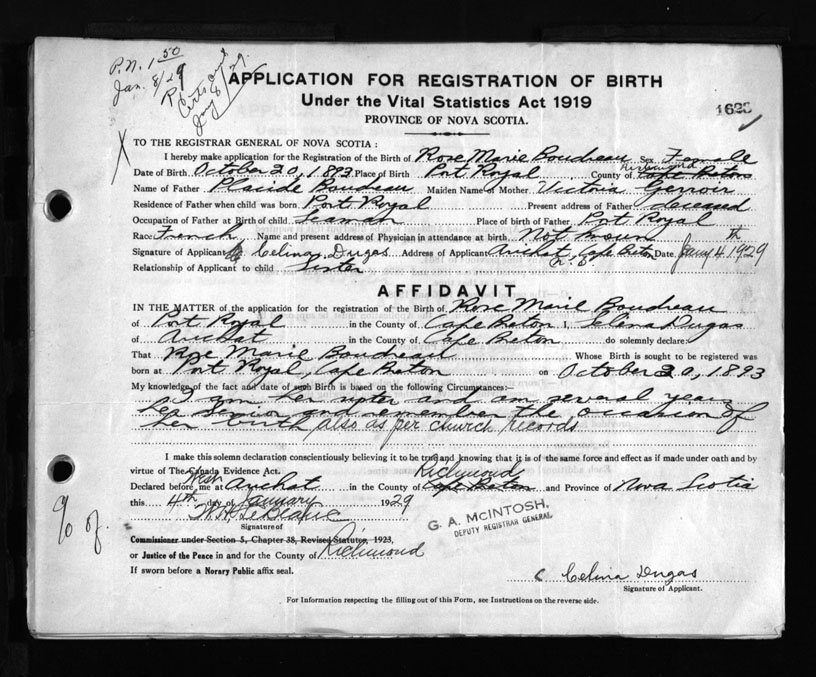 P.N. 1 50
Jan. 8/29
Certs and
Jany 8/29.
APPLICATION FOR REGISTRATION OF BIRTH
Under the Vital Statistics Act 1919
PROVINCE OF NOVA SCOTIA.
1628
X
TO THE REGISTRAR GENERAL OF NOVA SCOTIA:
I hereby make application for the Registration of the Birth of Rose Marie Boudreau Sex Female
Richmond
Date of Birth October 20, 1893 Place of Birth Port Royal County of Cape Breton
Name of Father Placide Boudreau Maiden Name of Mother Victoria Gerroir
Residence of Father when child was born Port Royal Present address of Father deceased
Occupation of Father at Birth of child Seaman Place of birth of Father Port Royal
Race French Name and present address of Physician in attendance at birth Not known
Signature of Applicant Celina Dugas Address of Applicant Arichat, Cape Breton Date Jany 4th 1929
N.S.
Relationship of Applicant to child Sister
AFFIDAVIT
IN THE MATTER of the application for the registration of the Birth of Rose Marie Boudreau
of Port Royal in the County of Cape Breton I, Celena Dugas
of Arichat in the County of Cape Breton do solemnly declare:
That Rose Marie Boudreau Whose Birth is sought to be registered was
born at Port Royal, Cape Breton on October 20, 1893
My knowledge of the fact and date of such Birth is based on the following Circumstances:—
I am her sister and am several years
her senior and remember the occasion of
her birth also as per church records
I make this solemn declaration conscientiously believing it to be true and knowing that it is of the same force and effect as if made under oath and by
virtue of The Canada Evidence Act.
West Richmond
Declared before me at Arichat in the County of Cape Breton and Province of Nova Scotia
this 4th day of January 1929
LeBlanc
G. A. McINTOSH,
DEPUTY REGISTRAR GENERAL
Signature of
Commissioner under Section 5, Chapter 38, Revised Statutes, 1923,
or Justice of the Peace in and for the County of Richmond
If sworn before a Norary Public affix seal.
Celina Dugas
Signature of Applicant.
For Information respecting the filling out of this Form, see Instructions on the reverse side.